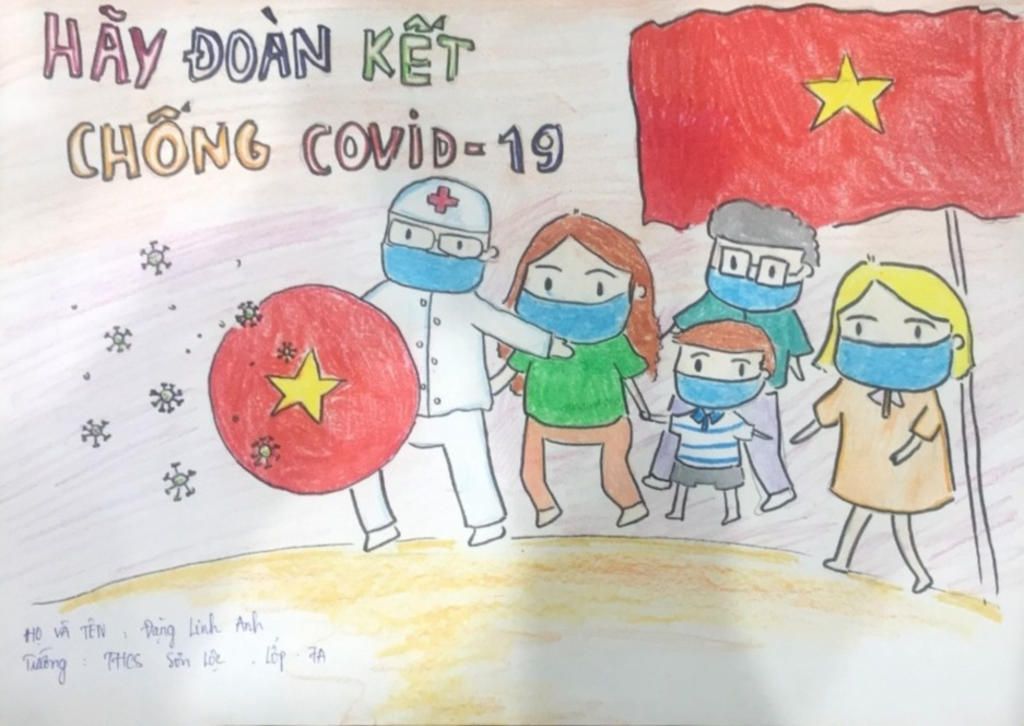 HÃY ĐOÀN KẾT
CHỐNG COVID-19
HỌ VÀ TÊN : Đặng Linh Anh
Trường : THCS Sơn Lộc . Lớp 7A